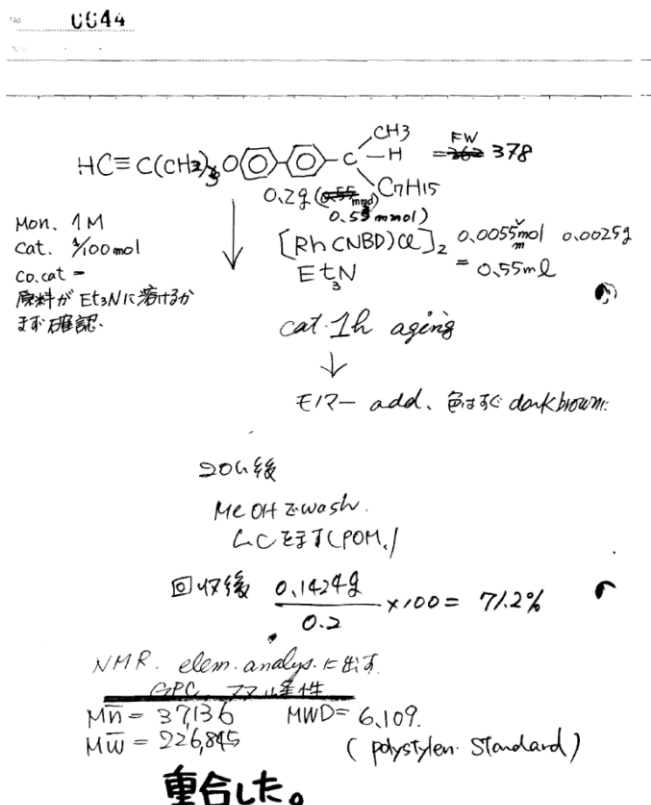 No 0644
CH3
HC≡C(CH2)3O-C-H = FW 378
C7H15
0.2g (0.55 mmol)
0.53 mmol)
Mon. 1M
Cat. 1/100 mol
co.cat =
原料が Et3Nに溶けるか
まず確認.
[Rh(NBD)Cl]2 0.0055mmol 0.0025g
Et3N = 0.55ml
cat. 1h aging
モノマー add、色はすぐ dark brown.
20h後
MeOHでwash.
LCを示す(POM.)
回収後 0.1424g / 0.2 ×100 = 71.2%
NMR. elem. analys. に出す.
GPC 双峰性
Mn = 37,136 MWD = 6.109.
Mw = 226,845 (polystylen. Standard)
重合した。